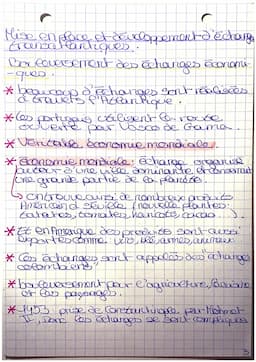 Mise en place et développement d'échanges
transatlantiques.
Bouleversement des échanges économi-
-ques.
* beaucoup d'échanges sont réalisées
à travers l'Atlantique.
* Les portugais utilisent la route
ouverte par Vasco de Gama.
* Véritable économie mondiale
* économie mondiale: échange organisé
autour d'une ville dominante et concernant
une grande partie de la planète.
↳ on trouve aussi de nombreux produits
Américains (nouvelle plantes:
patates, tomates, haricots, cacao...)
* Et en Amérique des produits sont aussi
exportés comme
* Ces échanges sont appelés des échanges
colombiens
* bouleversement pour l'agriculture,
et les paysages.
* 1453 prise de Constantinople par Mehmet
II, donc les échanges se sont compliqués
3